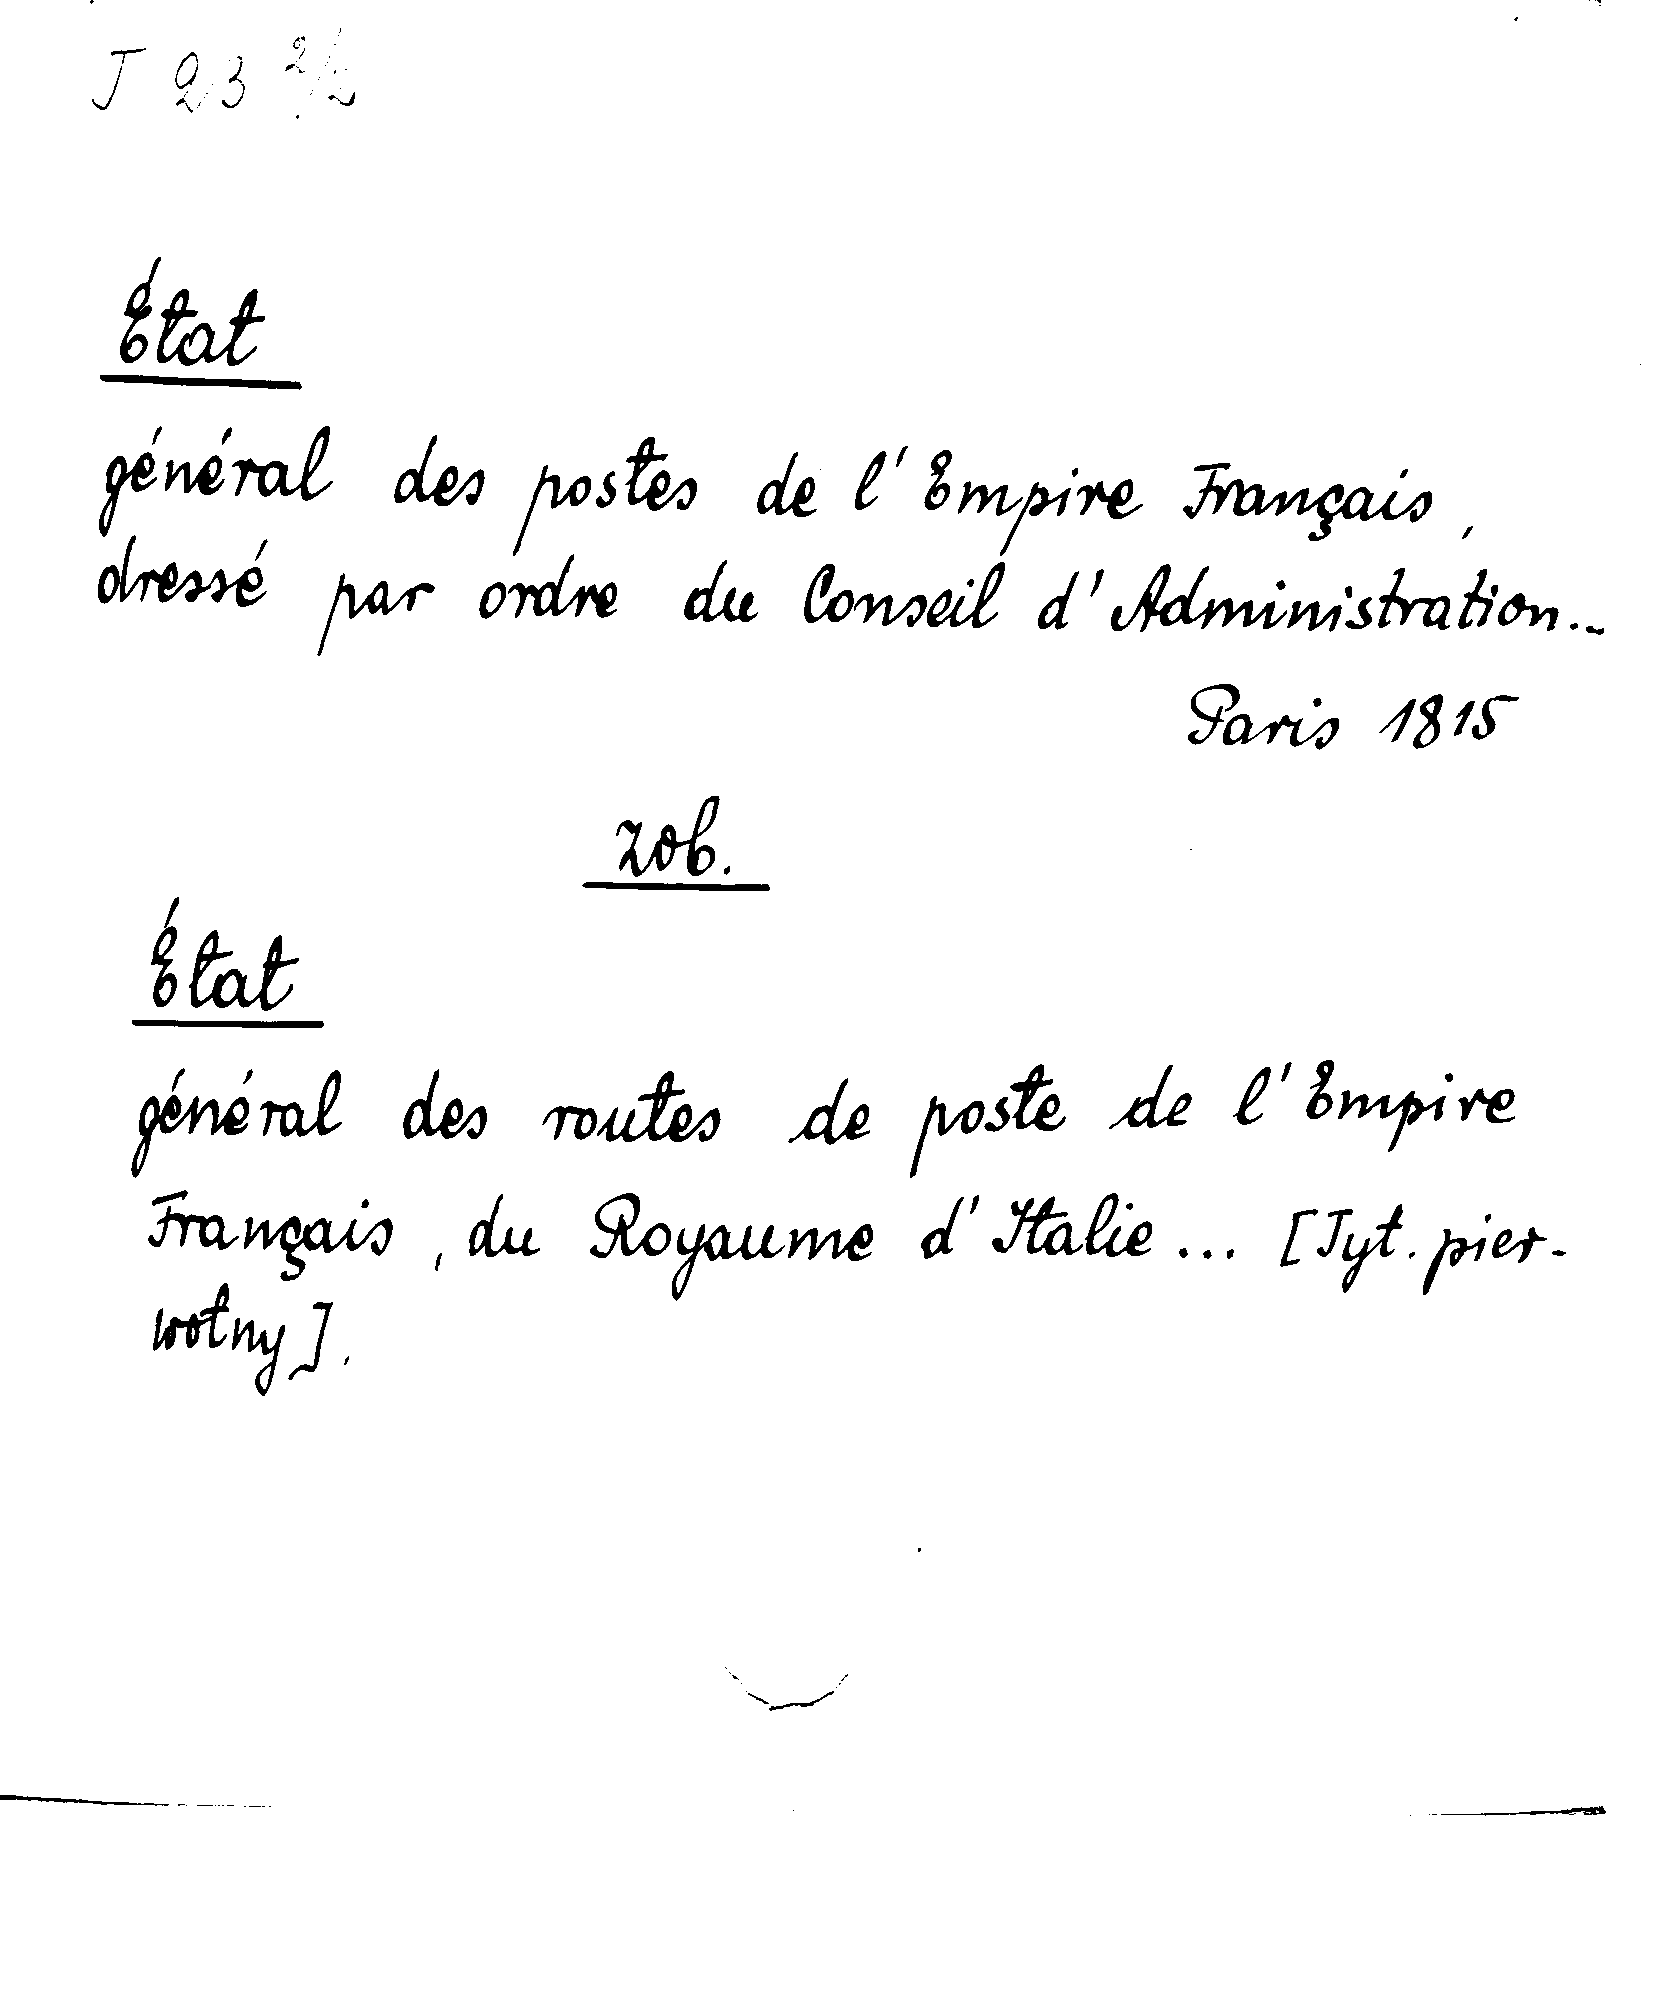 J 23 2/2
État
général des postes de l'Empire Français,
dressé par ordre du Conseil d'Administration...
Paris 1815
zob.
État
général des routes de poste de l'Empire
Français, du Royaume d'Italie... [Tyt. pier-
wotny].